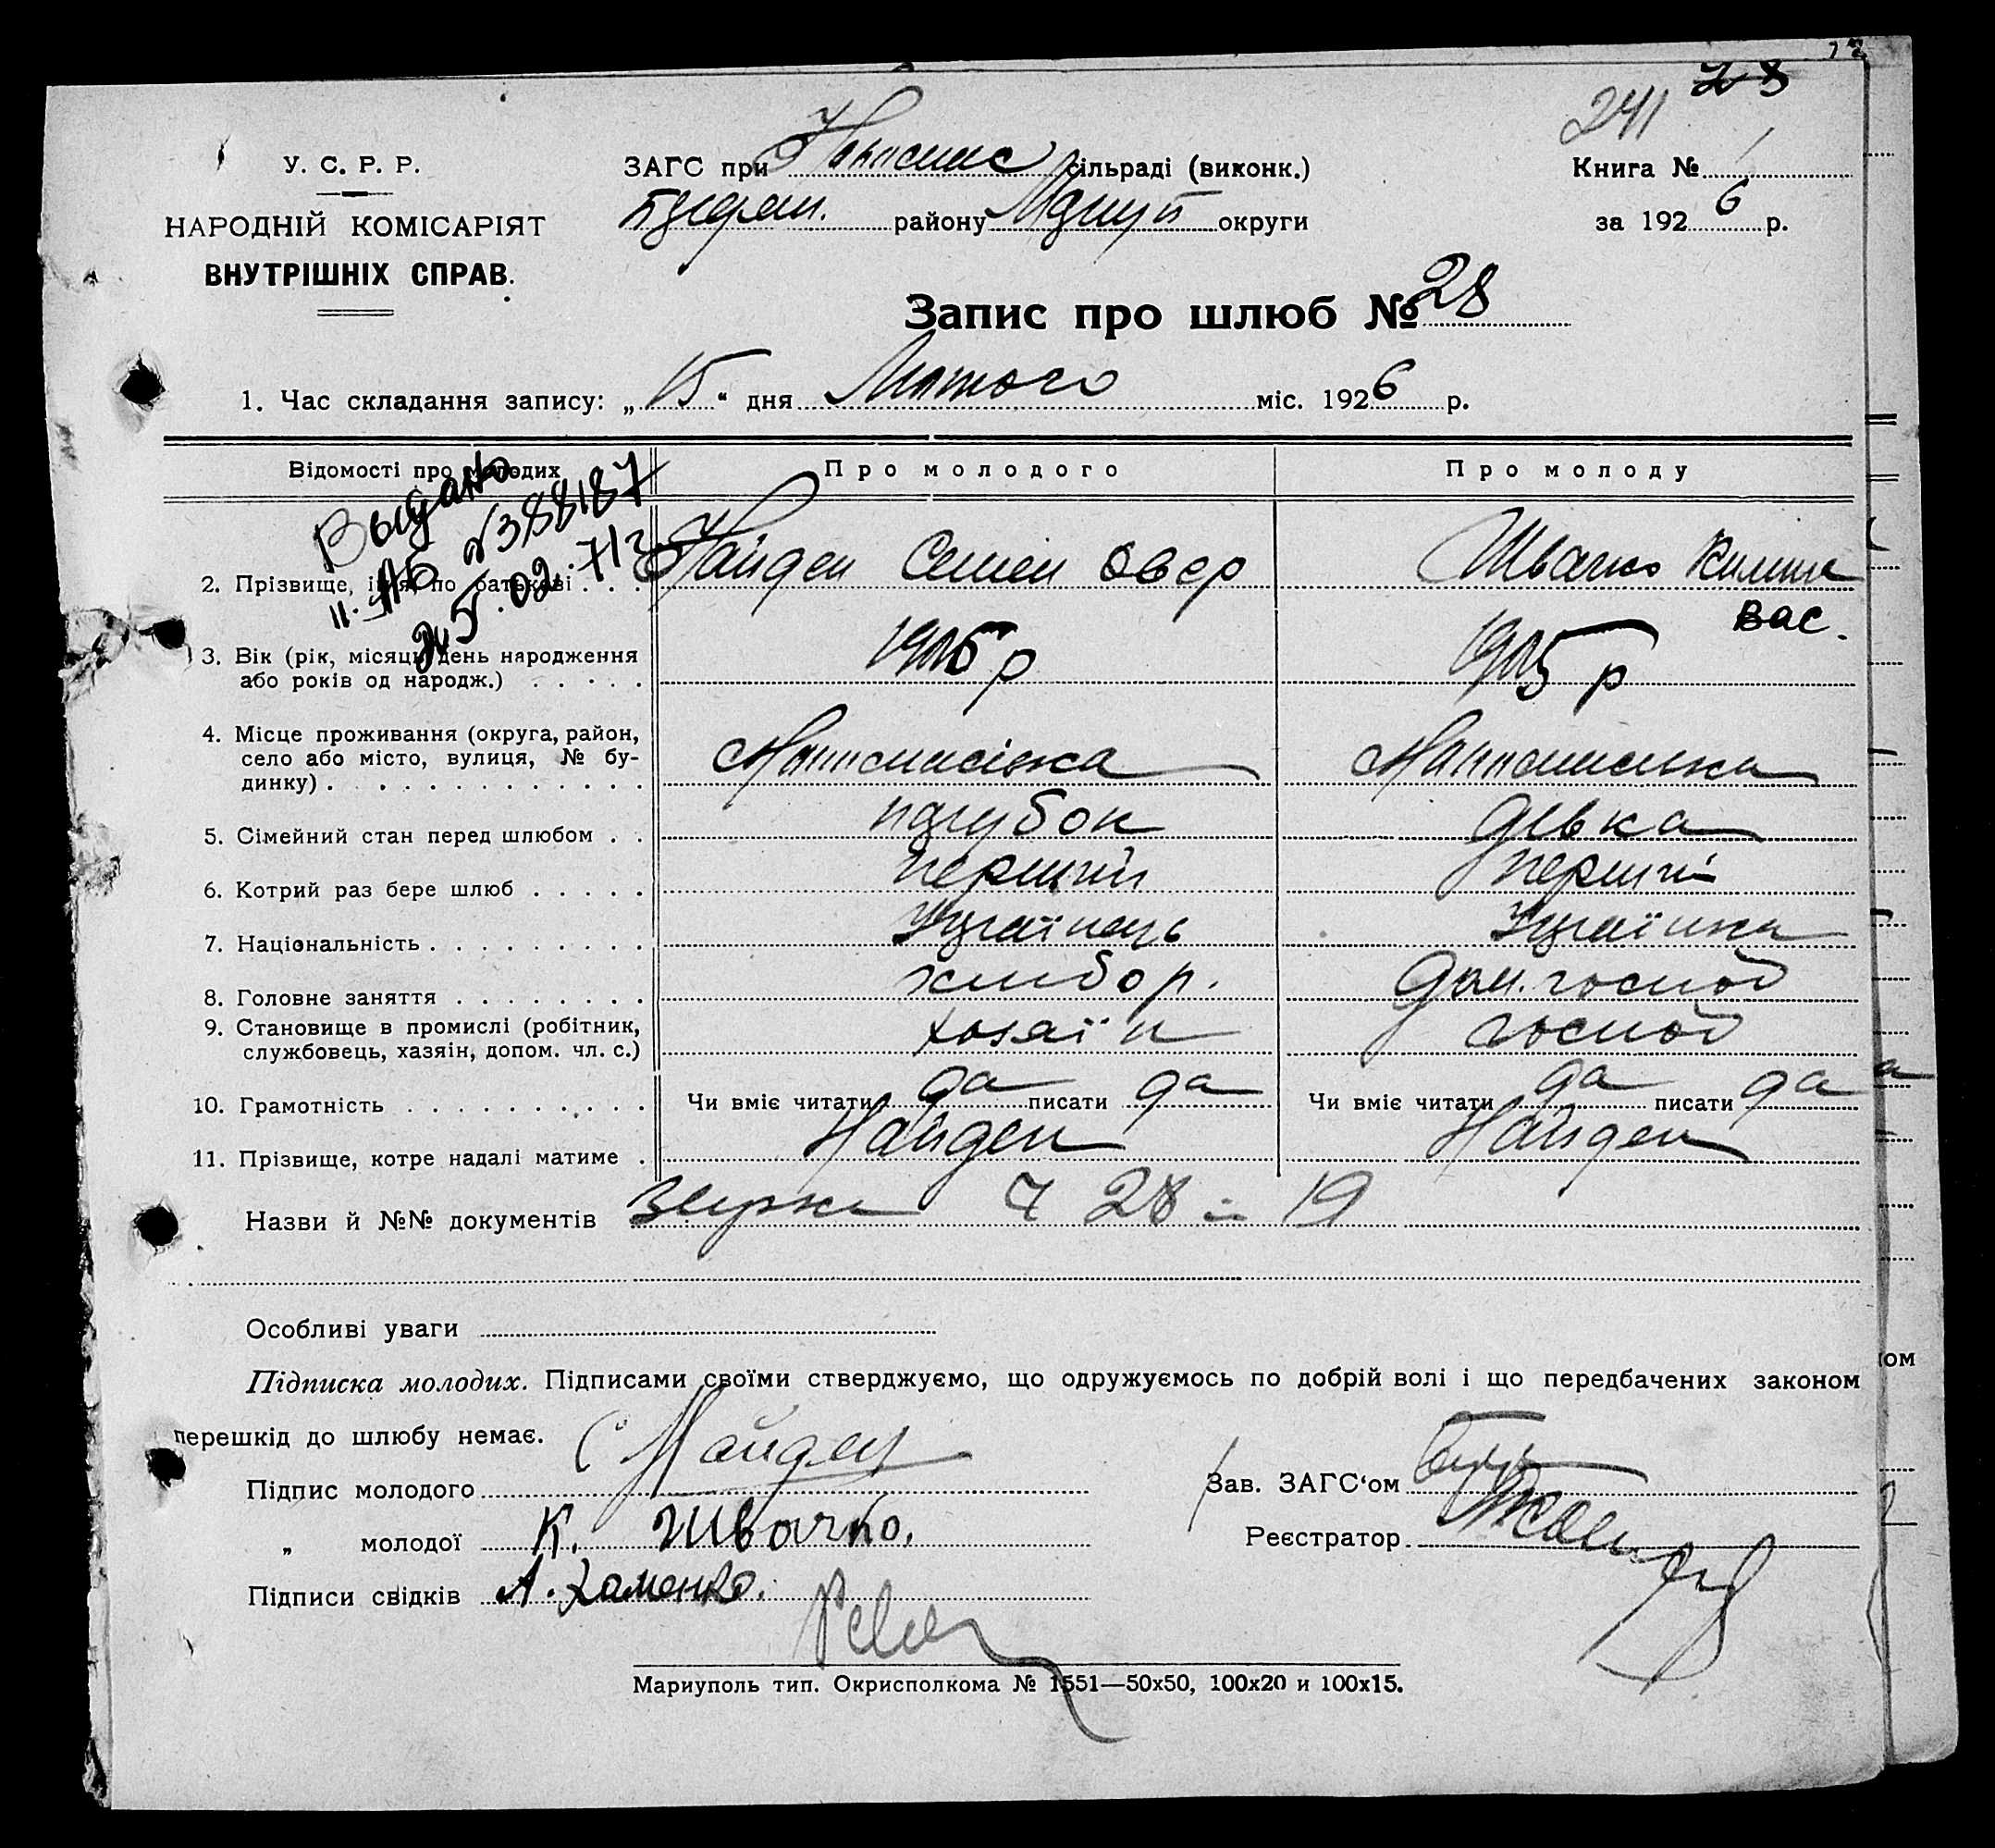 241 28
У. С. Р. Р.
НАРОДНІЙ КОМІСАРІЯТ
ВНУТРІШНІХ СПРАВ.
ЗАГС при сільраді (виконк.)
району округи
Книга № 1
за 1926 р.
Запис про шлюб № 28
1. Час складання запису: „15“ дня Лютого міс. 1926 р.
Відомості про молодих
Про молодого
Про молоду
Выдано
II-АБ №388187
5.02.71г
2. Прізвище, ім'я, по батькові . . . Найден Семен Овер Швачко Килина
Вас.
3. Вік (рік, місяць, день народження
або років од народж.) . . . . . 1905 р 1905 р
4. Місце проживання (округа, район,
село або місто, вулиця, № бу-
динку) . . . . . . . . . . . . .
5. Сімейний стан перед шлюбом . . парубок дівка
6. Котрий раз бере шлюб . . . . . перший перший
7. Національність . . . . . . . . . Українець Українка
8. Головне заняття . . . . . . . . хлібор. дом. господ
9. Становище в промислі (робітник,
службовець, хазяін, допом. чл. с.) хозяїн господ
10. Грамотність . . . . . . . . . . Чи вміє читати да писати да Чи вміє читати да писати да
11. Прізвище, котре надалі матиме . Найден Найден
Назви й №№ документів 28 19
Особливі уваги
Підписка молодих. Підписами своїми стверджуємо, що одружуємось по добрій волі і що передбачених законом
перешкід до шлюбу немає.
Підпис молодого С Найден
Зав. ЗАГС‘ом
„ молодої К. Швачко.
Реєстратор
Підписи свідків А. Хоменко.
Мариуполь тип. Окрисполкома № 1551—50х50, 100х20 и 100х15.